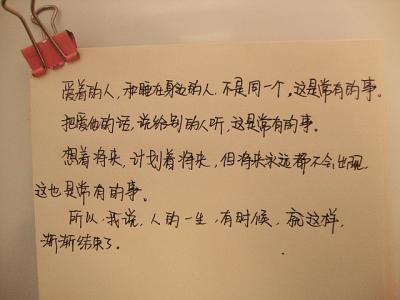 爱着的人，和睡在身边的人，不是同一个，这是常有的事。
把爱你的话，说给别的人听，这是常有的事。
想着将来，计划着将来，但将来永远都不会出现，
这也是常有的事。
所以，我说，人的一生，有时候，就这样，
渐渐结束了。